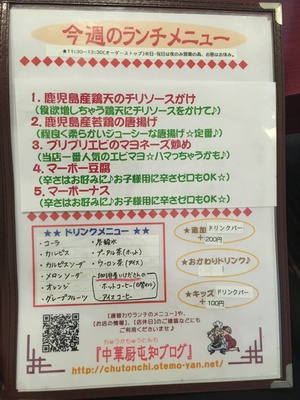 今週のランチメニュー
★11:30～13:30(オーダーストップ)※日・祝日は夜のみ営業の為、お昼はお休み。
1. 鹿児島産鶏天のチリソースがけ
(食欲増しちゃう鶏天にチリソースをかけて♪)
2. 鹿児島産若鶏の唐揚げ
(程良く柔らかいジューシーな唐揚げ☆定番♪)
3. プリプリエビのマヨネーズ炒め
(当店一番人気のエビマヨ☆ハマっちゃうかも♪)
4. マーボー豆腐
(辛さはお好みに♪お子様用に辛さゼロもOK☆)
5. マーボーナス
(辛さはお好みに♪お子様用に辛さゼロもOK☆)
★★ドリンクメニュー★★
・コーラ
・カルピス
・カルピスソーダ
・メロンソーダ
・オレンジ
・グレープフルーツ
・炭酸水
・プーアル茶(ホット)
・ウーロン茶(アイス)
ホットコーヒー
アイスコーヒー
★追加ドリンクバー
+200円
★おかわりドリンク♪
★キッズドリンクバー
+100円
【週替わりランチのメニュー】や、
【お店の情報】、【店休日】のご確認などにも
ご利用くださいませ♪
ちゅうかちゅうとんち
『中華厨屯知ブログ』
http://chutonchi.otemo-yan.net/